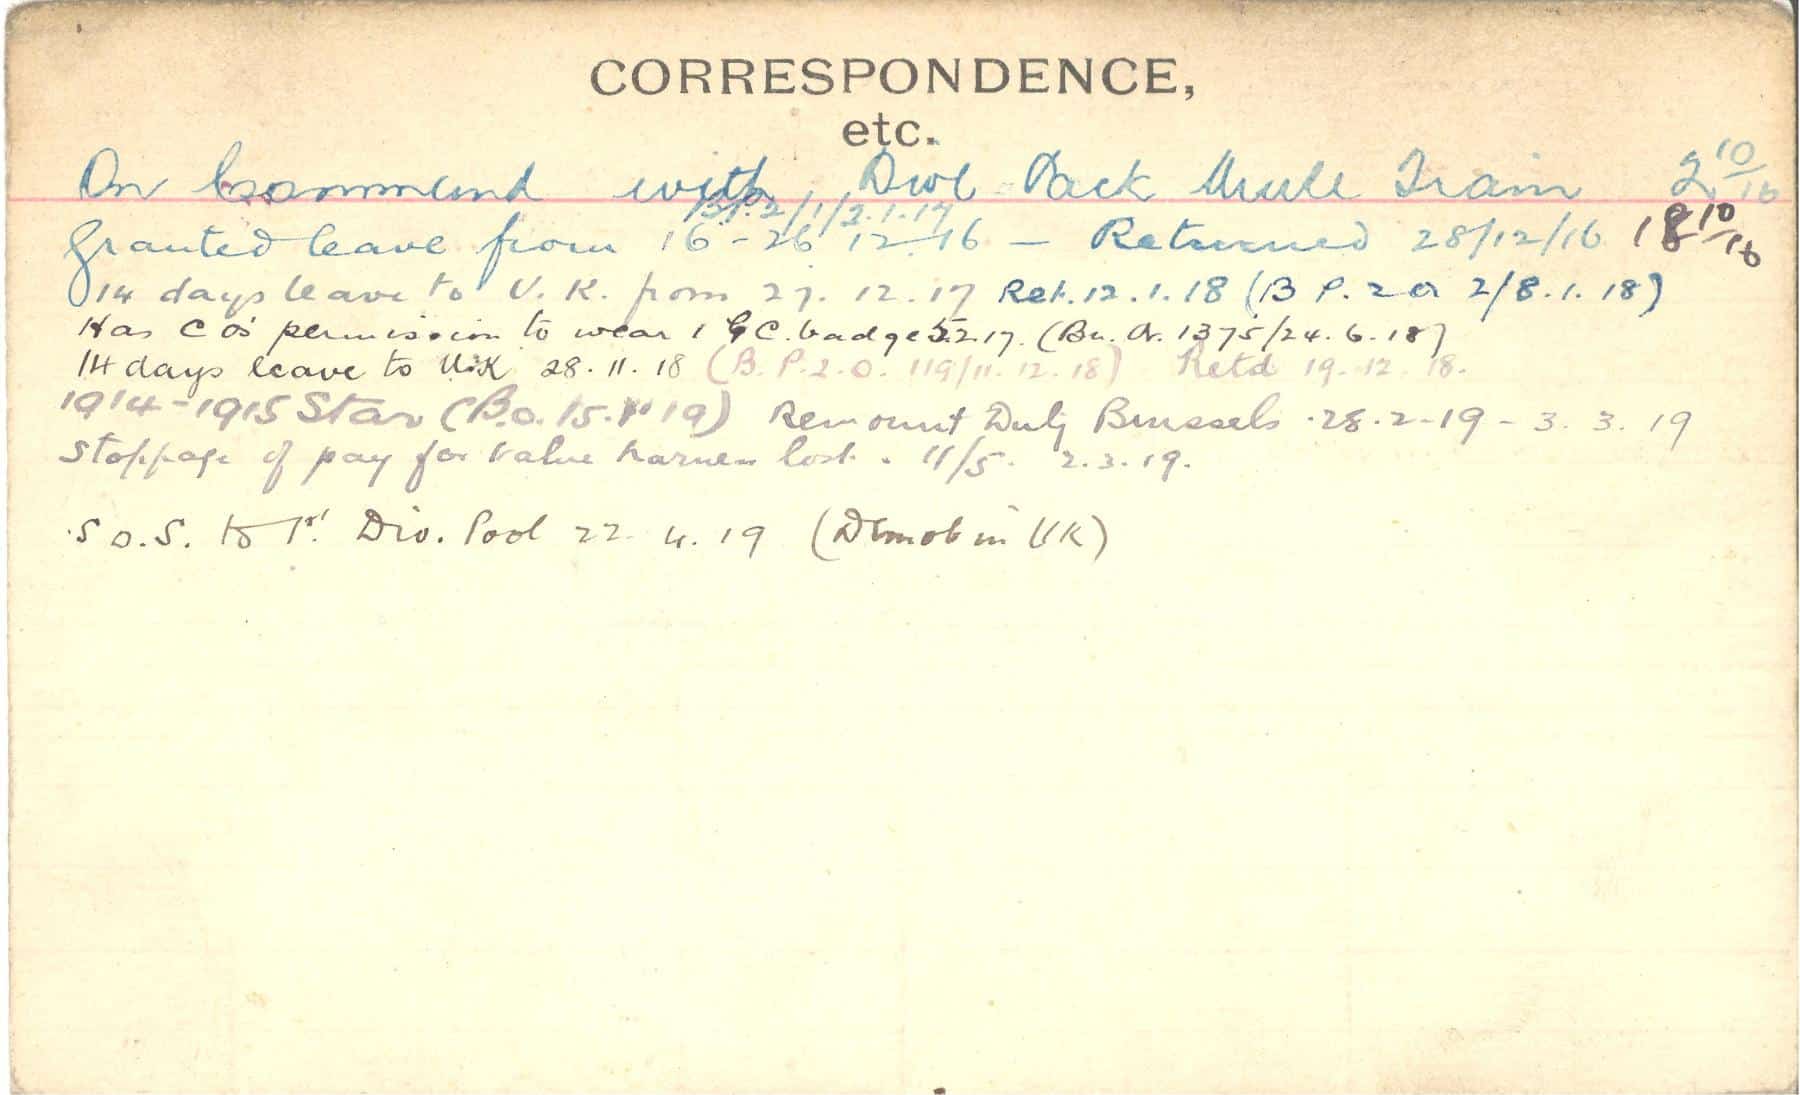 CORRESPONDENCE,
etc.
On Command with Divl Pack Mule Train 2 10/16
B.P.2/1/2.1.17
Granted leave from 16 - 26 12-16 - Returned 28/12/16 18 10/16
14 days leave to U.K. from 27.12.17 Ret. 12.1.18 (B P. 2 O 2/8.1.18)
Has C O's permission to wear 1 G C. badge 5.2.17. (Bn. Or. 1375/24.6.18)
14 days leave to U.K 28.11.18 (B.P.2.O. 119/11.12.18) Retd 19.12.18.
1914-1915 Star (B.O. 15. 19) Remount Duty Brussels .28.2-19 - 3.3.19
Stoppage of pay for value harness lost. 11/5. 2.3.19.
S.O.S. to 1st Div. Pool 22.4.19 (Demob in UK)